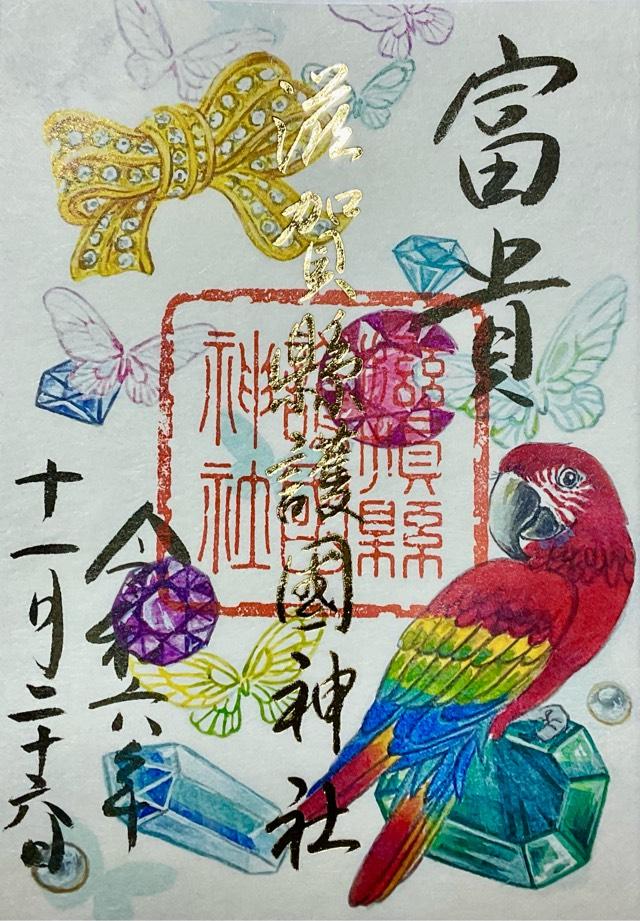 富貴
滋賀縣護國神社
滋賀縣
護國
神社
令和六年
十一月二十六日